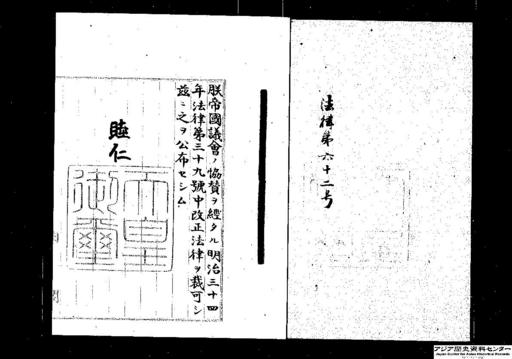 法律第六十二号
朕帝國議會ノ協賛ヲ經タル明治三十四
年法律第三十九號中改正法律ヲ裁可シ
茲ニ之ヲ公布セシム
睦仁
天皇
御璽
アジア歴史資料センター
Japan Center for Asian Historical Records